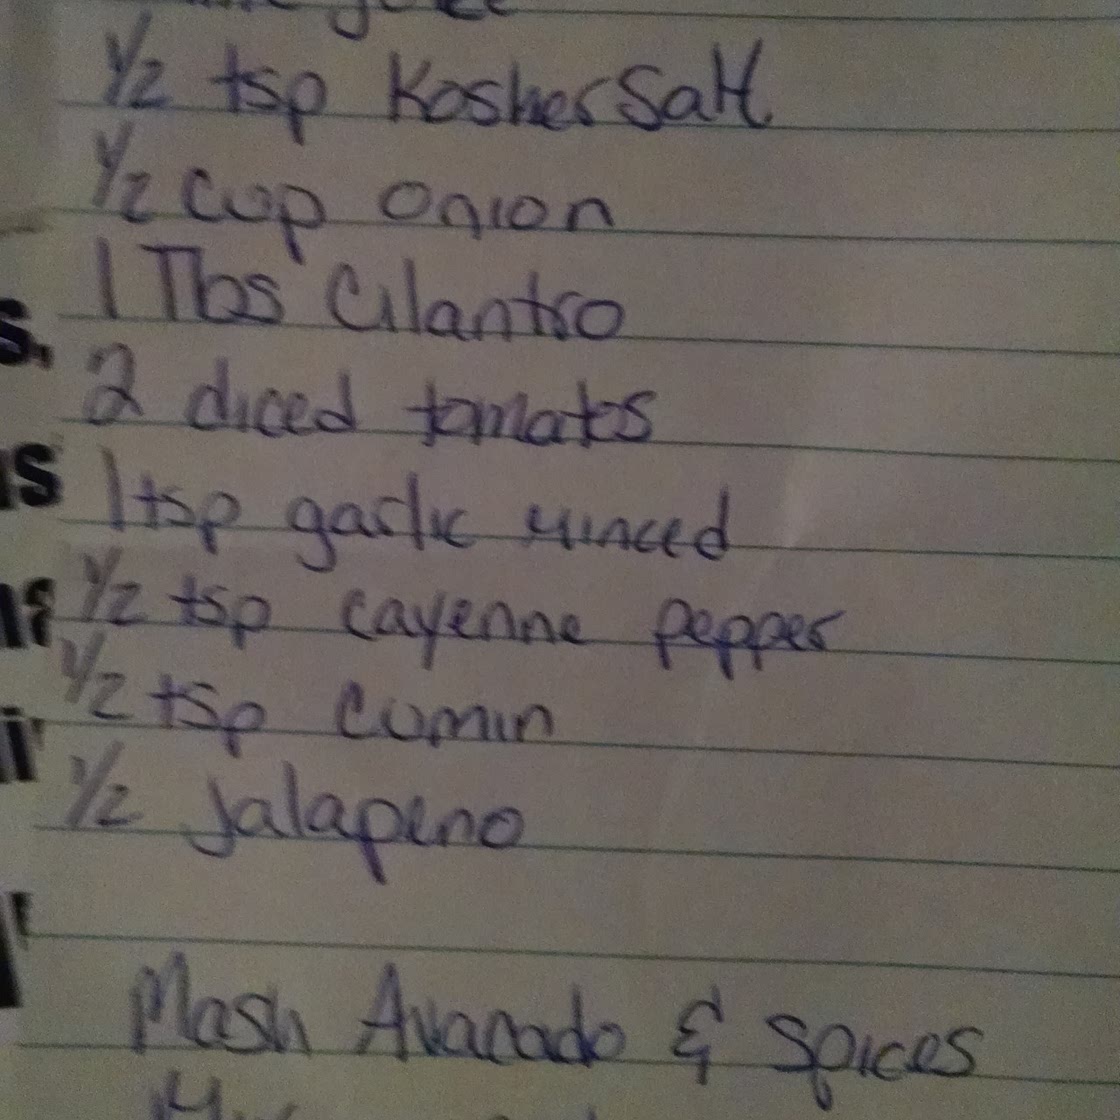 1/2 tsp Kosher Salt
1/2 cup onion
1 Tbs Cilantro
2 diced tomatos
1 tsp garlic minced
1/2 tsp cayenne pepper
1/2 tsp cumin
1/2 jalapeno
Mash Avacado & spices